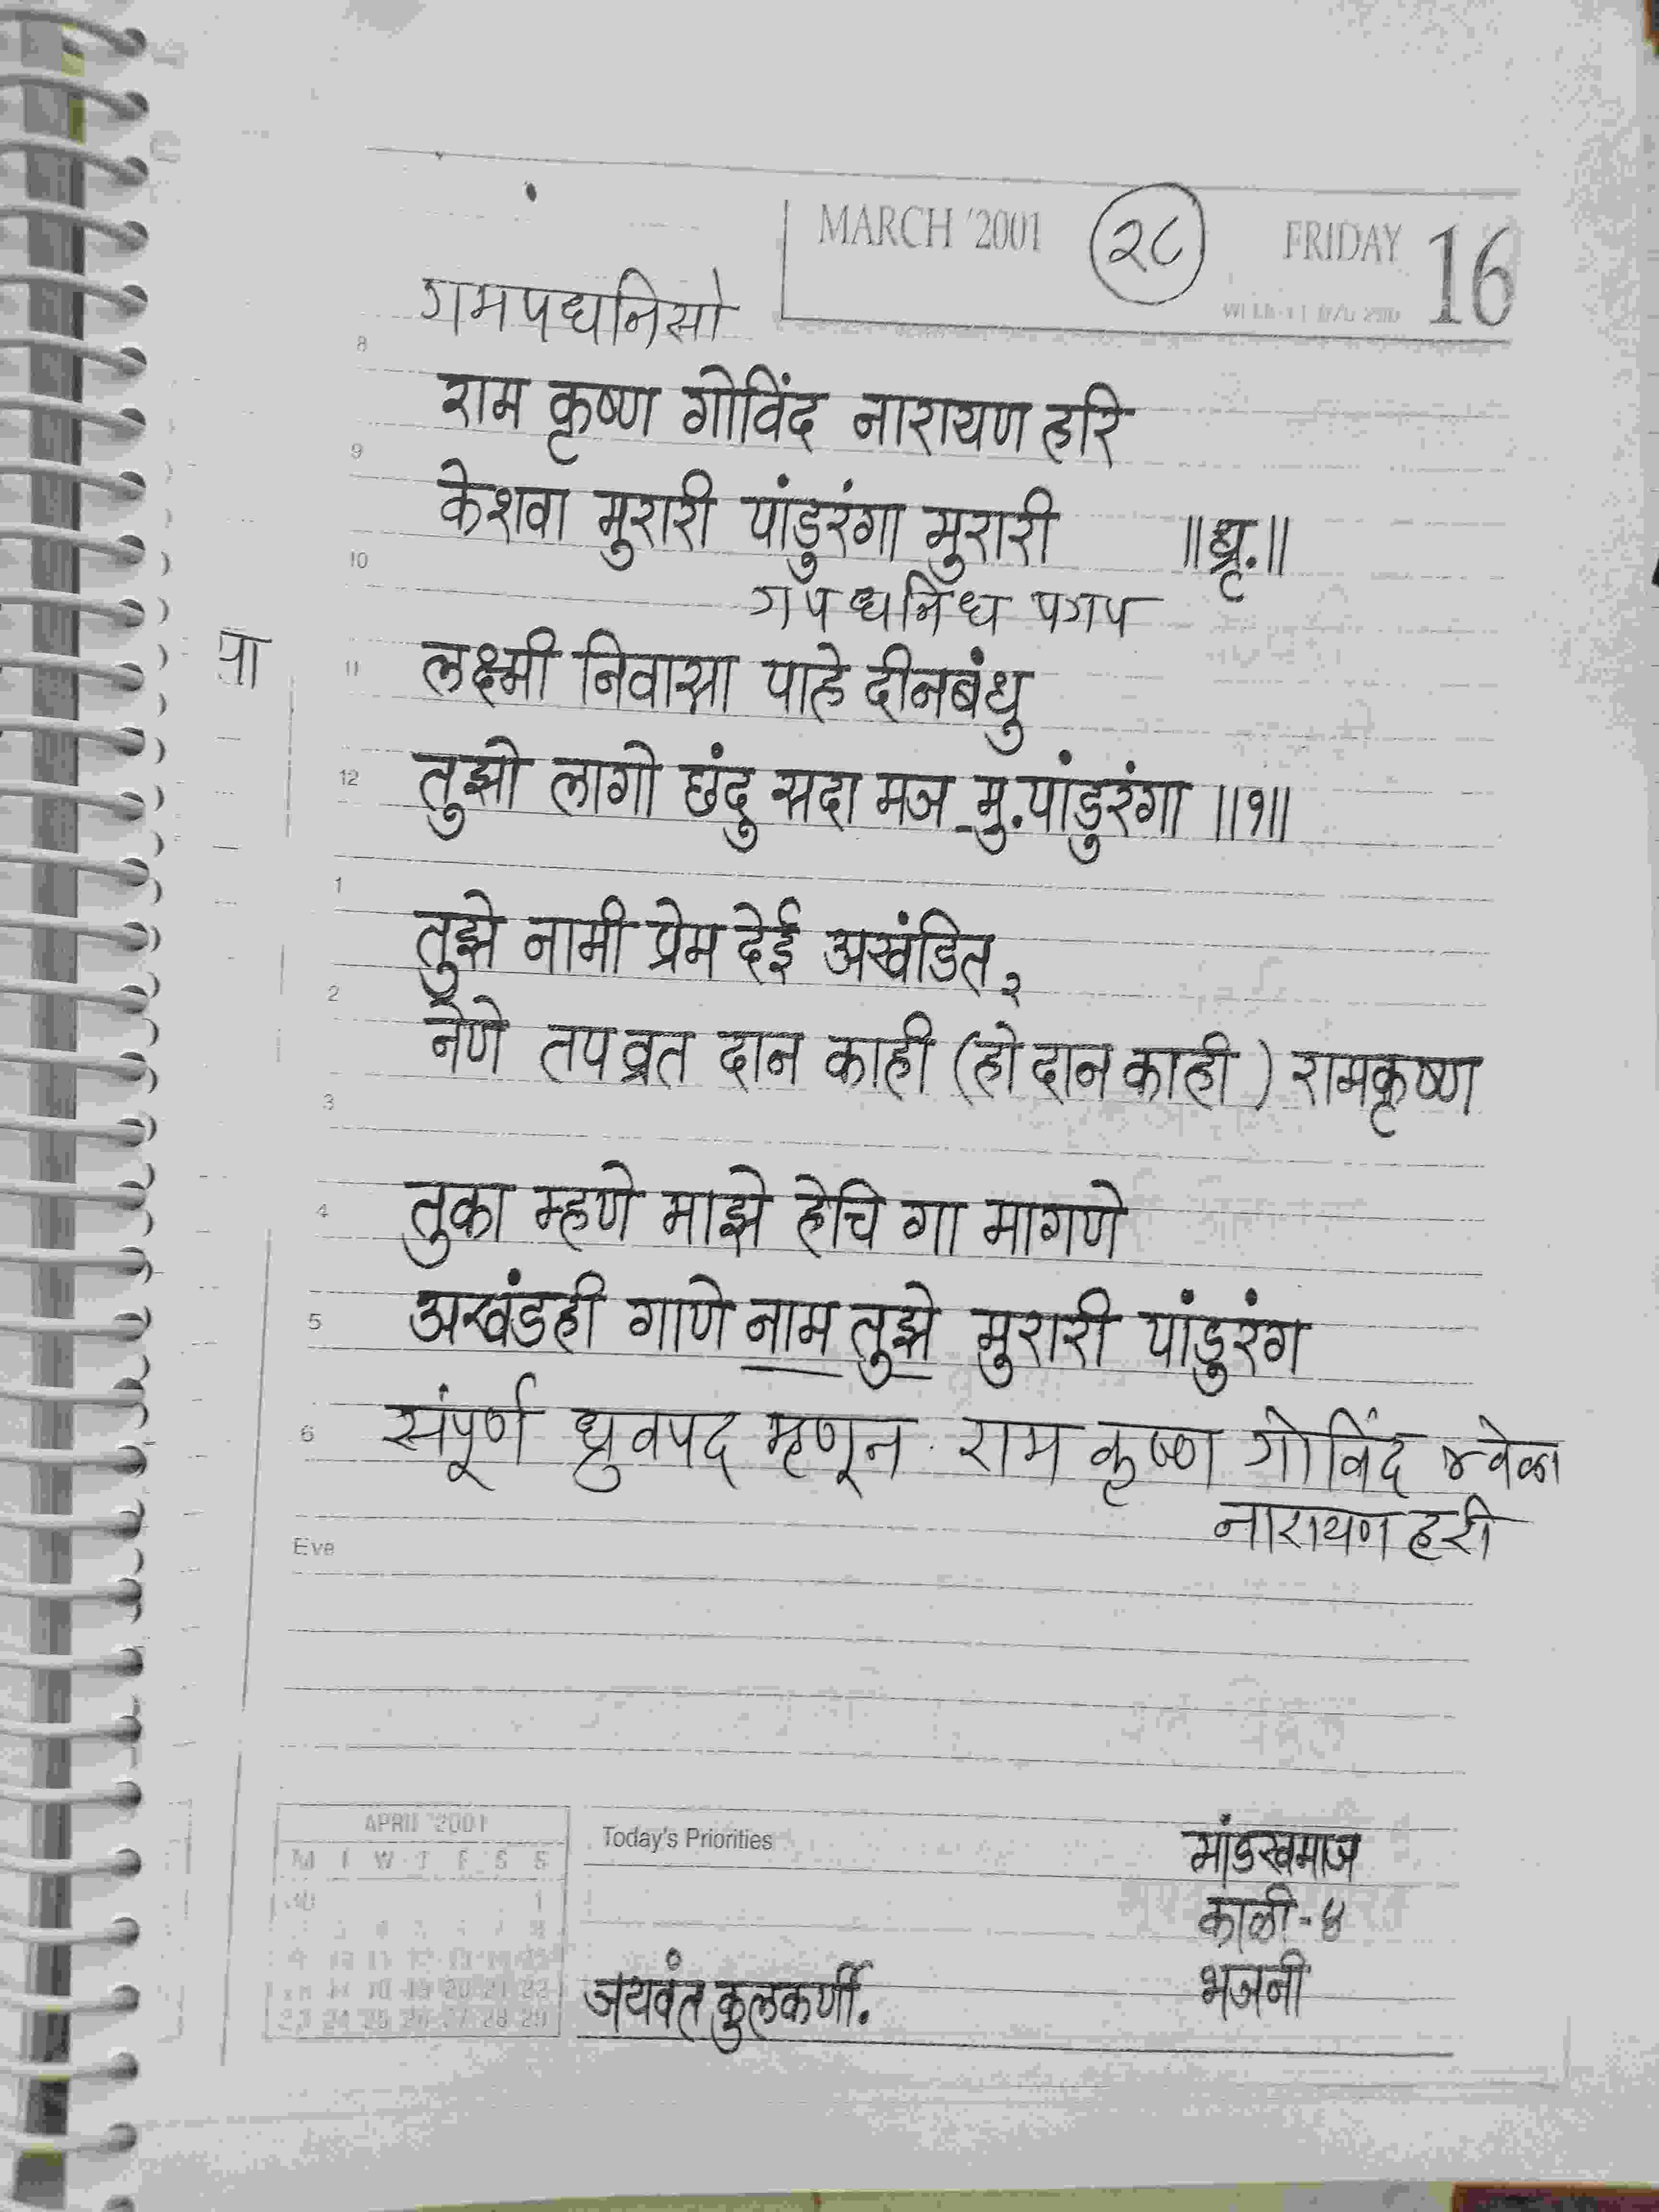 MARCH '2001 २८ FRIDAY 16
गमपधनिसो
8
राम कृष्ण गोविंद नारायण हरि
9
केशवा मुरारी पांडुरंगा मुरारी ॥धृ.॥
10
गपधनिध पगप
पा
11 लक्ष्मी निवासा पाहे दीनबंधु
12 तुझो लागो छंदु सदा मज मु.पांडुरंगा ॥१॥
1
तुझे नामी प्रेम देई अखंडित २
2
नेणे तपव्रत दान काही (हो दान काही) रामकृष्ण
3
4 तुका म्हणे माझे हेचि गा मागणे
5 अखंडही गाणे नाम तुझे मुरारी पांडुरंग
6 संपूर्ण ध्रुवपद म्हणून राम कृष्ण गोविंद ४ वेळा
नारायण हरी
Eve
APRIL '2001
Today's Priorities
मांडखमाज
काळी-४
भजनी
जयवंत कुलकर्णी.